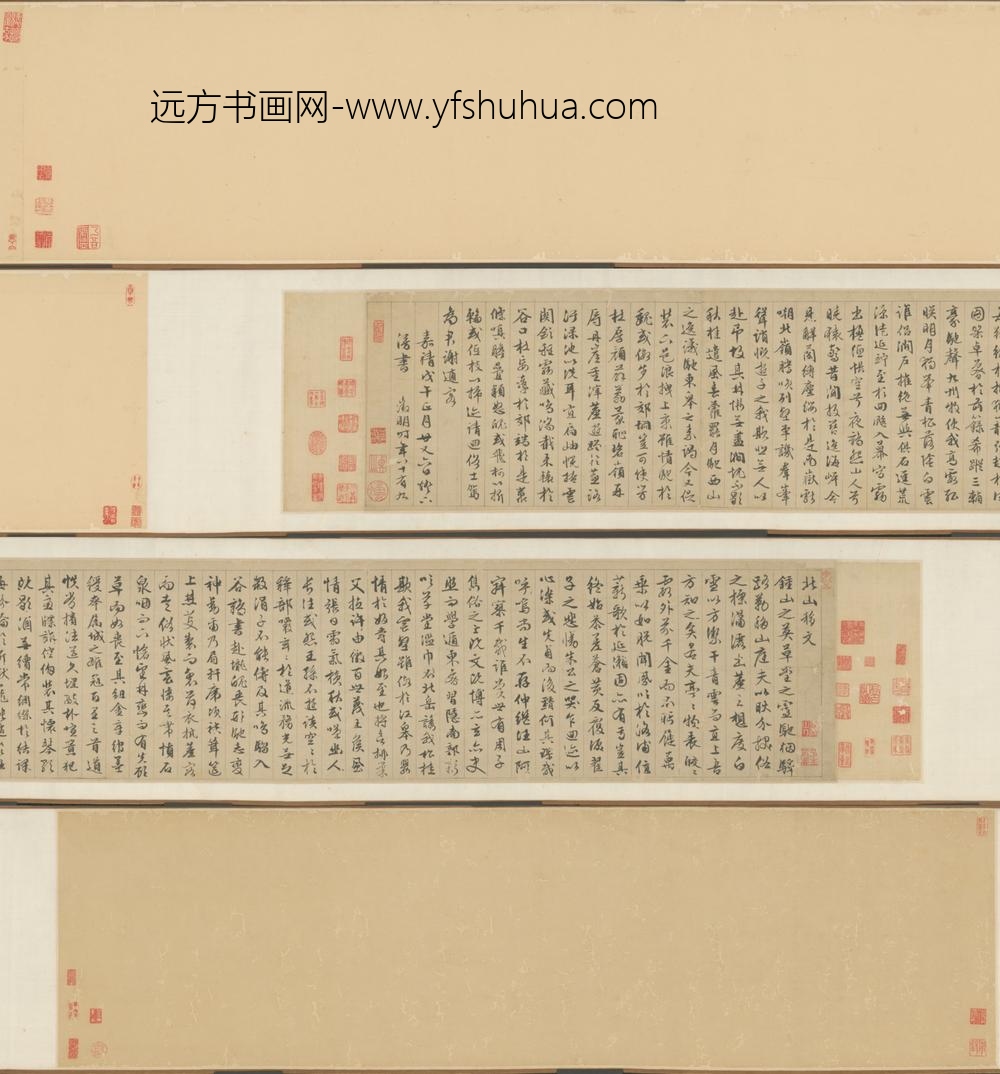 远方书画网-www.yfshuhua.com
北山移文
鍾山之英草堂之靈馳煙驛
路勒移山庭夫以耿介拔俗
之標瀟灑出塵之想度白
雪以方潔干青雲而直上吾
方知之矣若夫亭亭物表皎皎
霞外芥千金而不眄屣萬
乘以如脫聞鳳吹於洛浦值
薪歌於延瀨固亦有焉豈其
終始參差蒼黃反覆淚翟
子之悲慟朱公之哭乍迴迹以
心染或先貞而後黷何其謬哉
嗚呼尚生不存仲氏既往山阿
寂寥千載誰賞世有周子
雋俗之士既文既博亦玄亦史
然而學遁東魯習隱南郭竊
吹草堂濫巾北岳誘我松桂
欺我雲壑雖假容於江皋乃纓
情於好爵其始至也將欲排巢
父拉許由傲百世蔑王侯風
情張日霜氣橫秋或嘆幽人
長往或怨王孫不游談空空於
釋部覈玄玄於道流務光何足比
涓子不能儔及其鳴騶入
谷鶴書赴隴形馳魄散志變
神動爾乃眉軒席次袂聳筵
上焚芰製而裂荷衣抗塵容
而走俗狀風雲悽其帶憤石
泉咽而下愴望林巒而有失顧
草木而如喪至其紐金章綰墨
綬跨屬城之雄冠百里之首道
帙長擯法筵久埋敲扑諠囂犯
其慮牒訴倥傯裝其懷琴歌
既斷酒賦無續常綢繆於結課
圖架卓魯於前籙希蹤三輔
豪馳聲九州牧使我高霞孤
映明月獨舉青松落陰白雲
誰侶澗戶摧絕無與歸石逕荒
涼徒延佇至於回飆入幕寫霧
出楹蕙帳空兮夜鶴怨山人去兮
曉猿驚昔聞投簪逸海岸今
見解蘭縛塵纓於是南嶽獻
嘲北嶺騰笑列壑爭譏攢峯
竦誚慨遊子之我欺悲無人以
赴弔故其林慚無盡澗愧不歇
秋桂遣風春蘿罷月馳西山
之逸議馳東皋之素謁今又促
裝下邑浪栧上京雖情殷於
魏闕或假步於山扃豈可使芳
杜厚顏薜荔蒙恥碧嶺再
辱丹崖重滓塵遊躅於蕙路
汙淥池以洗耳宜扃岫幌掩雲
關斂輕霧藏鳴湍截來轅於
谷口杜妄轡於郊端於是叢
條瞋膽疊穎怒魄或飛柯以折
輪或低枝以掃迹請迴俗士駕
為君謝逋客
嘉靖戊午正月廿又六日燈下
漫書 徵明時年八十有九